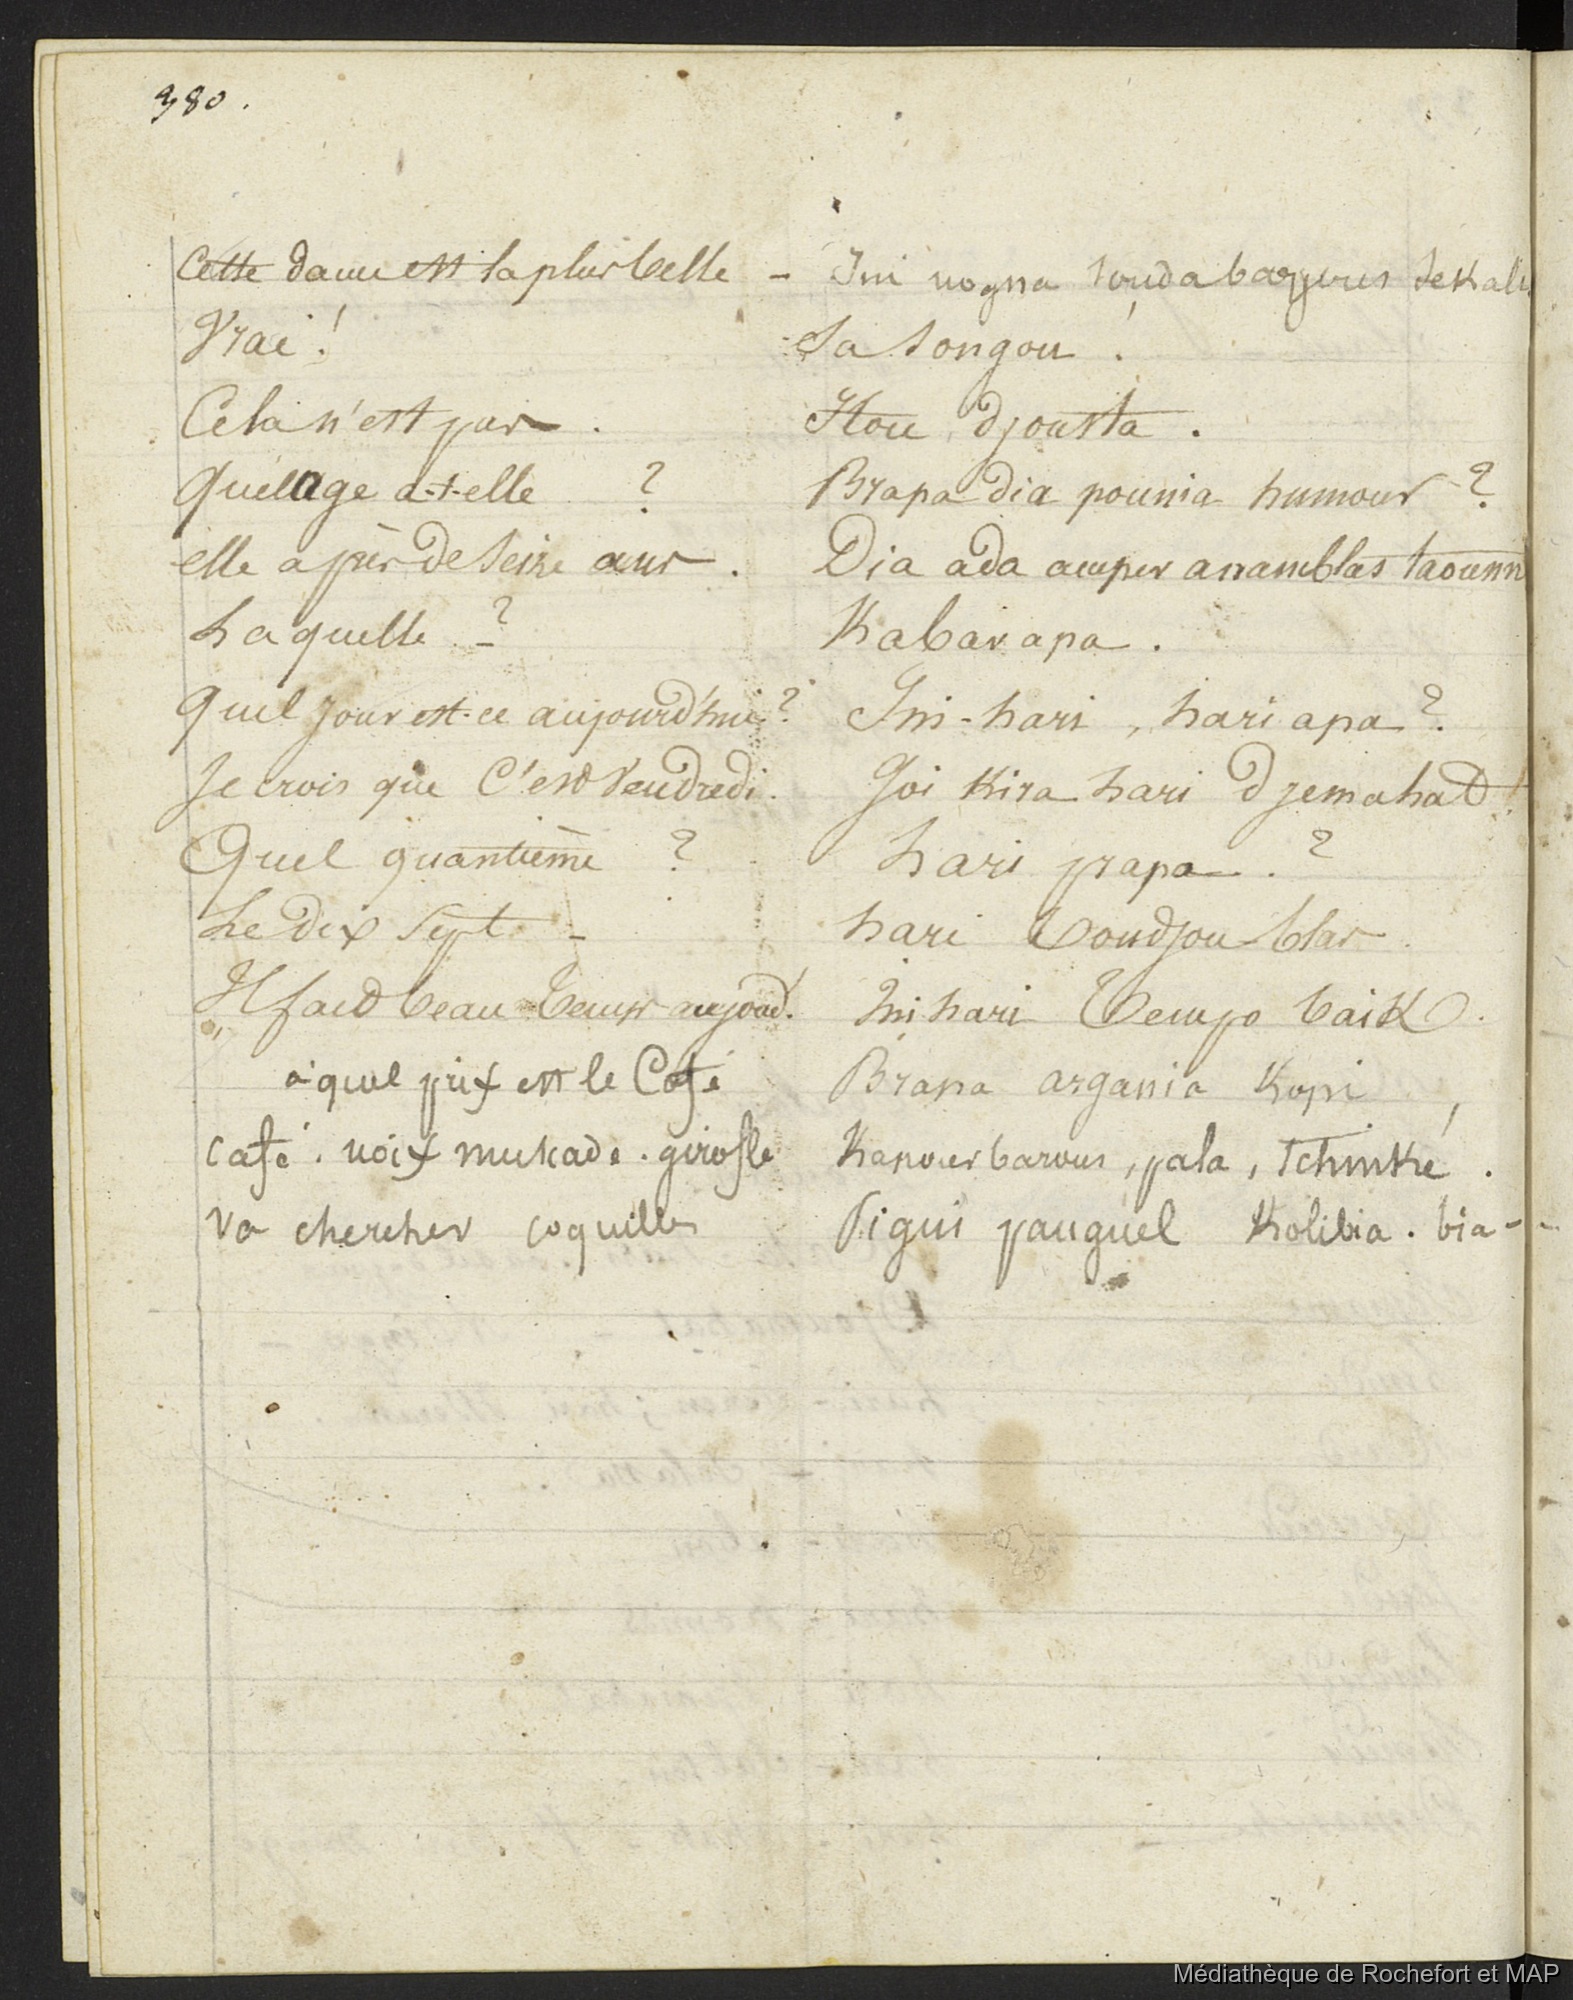 380.
Cette dame est la plus belle - Ini nogna touda bagous sekali
Vrai ! Sa tongou !
Cela n'est pas . Itou djousta .
Quel age a-t-elle ? Brapa dia pounia humour ?
elle a près de seize ans . Dia ada amper anamblas taounn
Laquelle - ? Kabar apa .
Quel jour est-ce aujourd'hui ? Ini-hari , hari apa ?
Je crois que C'est Vendredi . Goi Kira hari djemahat !
Quel quantième ? hari prapa . ?
Le dix sept - hari toudjou-blas .
Il fait beau temps aujourd. Ini hari tempo baik .
à quel prix est le Café Brapa argania Kopi ,
Café . noix muscade . girofle Kapouer barous , pala , tchinké .
va chercher coquilles Pigui panguel Kolibia . bia - -
Médiathèque de Rochefort et MAP